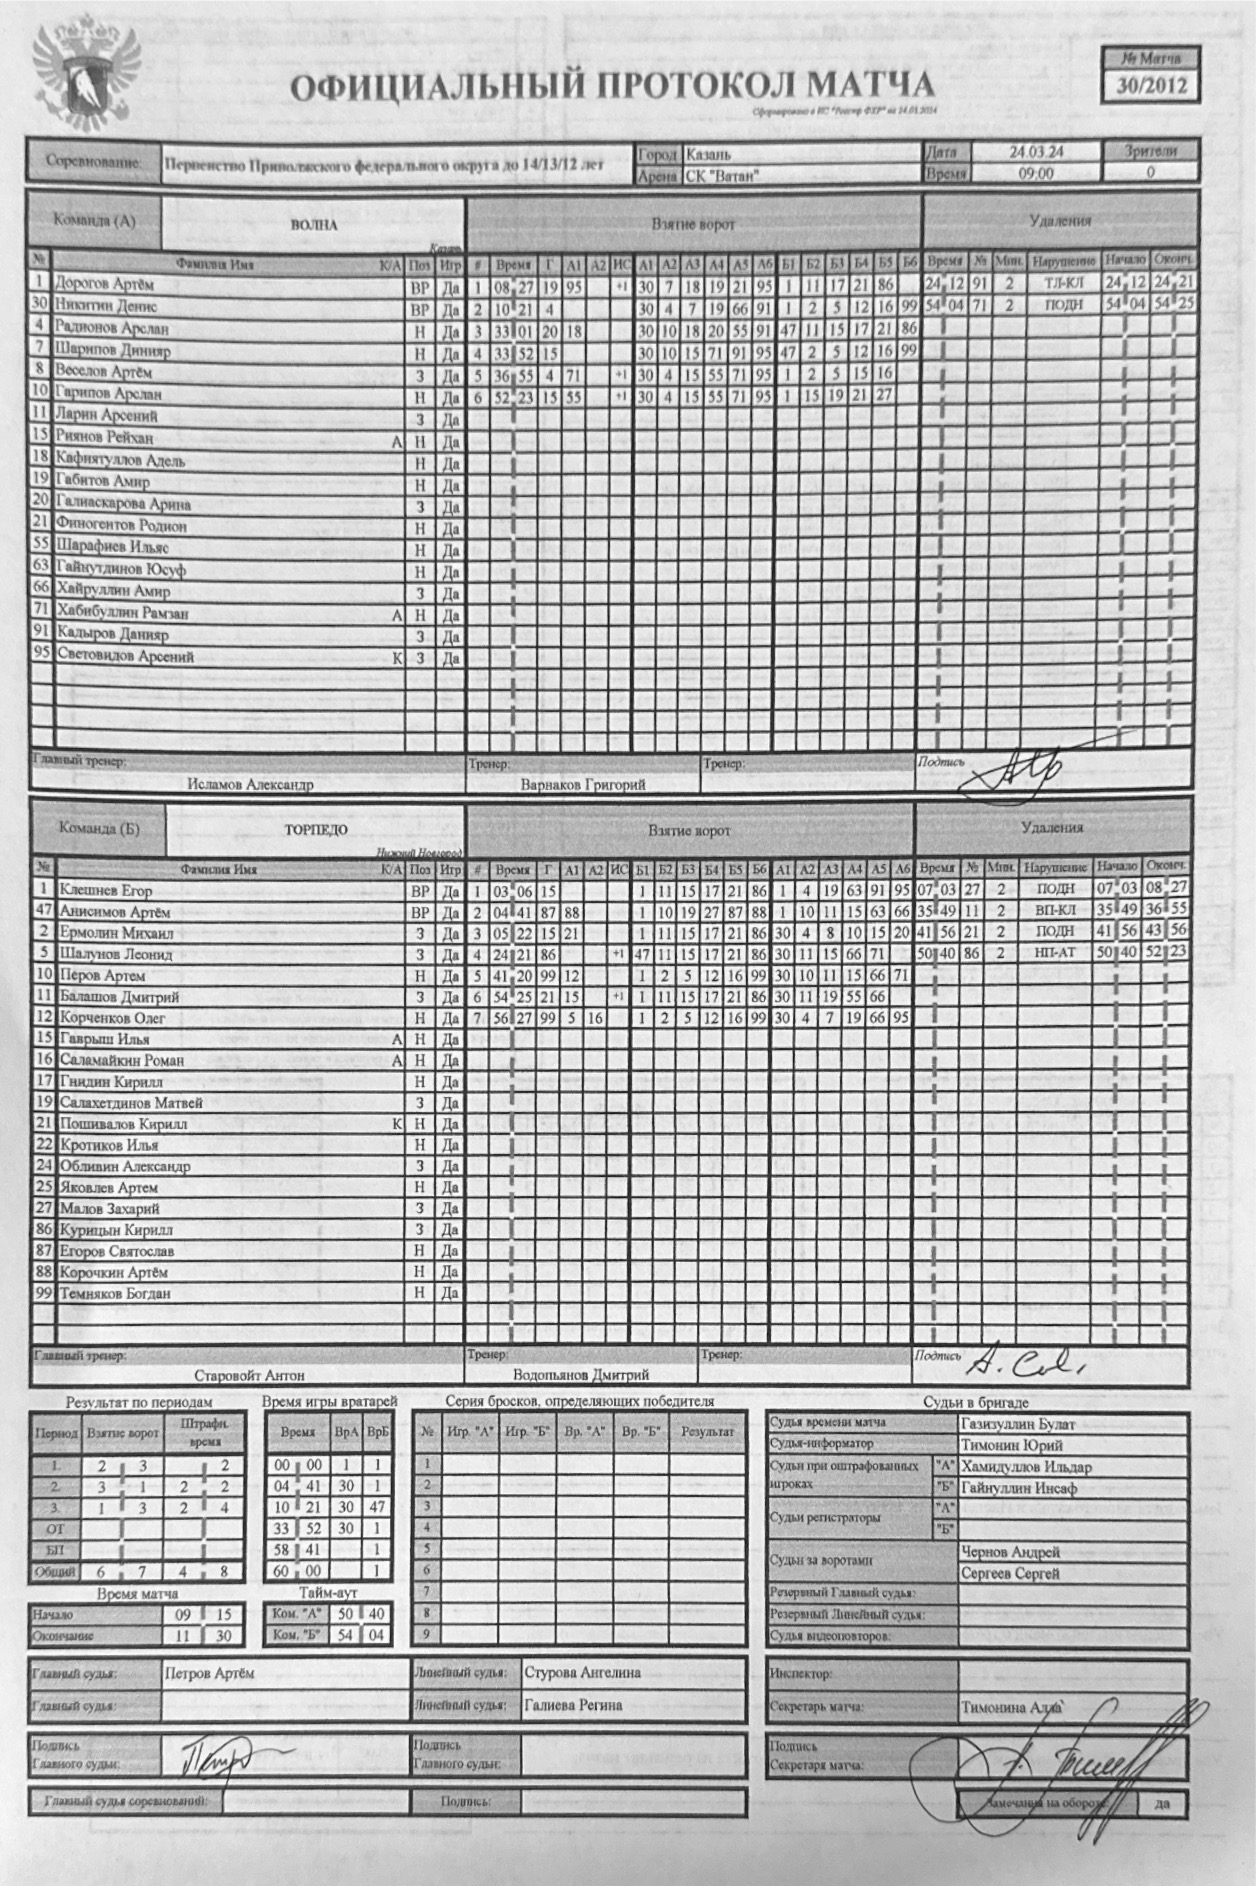 № Матча
ОФИЦИАЛЬНЫЙ ПРОТОКОЛ МАТЧА
30/2012
Сформировано в ИС "Реестр ФХР"
Соревнование: Первенство Приволжского федерального округа до 14/13/12 лет Город Казань Дата 24.03.24 Зрители
Арена СК "Ватан" Время 09:00 0
Команда (А) ВОЛНА Казань Взятие ворот Удаления
№ Фамилия Имя К/А Поз Игр # Время Г А1 А2 ИС А1 А2 А3 А4 А5 А6 Б1 Б2 Б3 Б4 Б5 Б6 Время № Мин. Нарушение Начало Оконч.
1 Дорогов Артём ВР Да 1 08 27 19 95 +1 30 7 18 19 21 95 1 11 17 21 86 24 12 91 2 ТЛ-КЛ 24 12 24 21
30 Никитин Денис ВР Да 2 10 21 4 30 4 7 19 66 91 1 2 5 12 16 99 54 04 71 2 ПОДН 54 04 54 25
4 Радионов Арслан Н Да 3 33 01 20 18 30 10 18 20 55 91 47 11 15 17 21 86
7 Шарипов Динияр Н Да 4 33 52 15 30 10 15 71 91 95 47 2 5 12 16 99
8 Веселов Артём З Да 5 36 55 4 71 +1 30 4 15 55 71 95 1 2 5 15 16
10 Гарипов Арслан Н Да 6 52 23 15 55 +1 30 4 15 55 71 95 1 15 19 21 27
11 Ларин Арсений З Да
15 Риянов Рейхан А Н Да
18 Кафиятуллов Адель Н Да
19 Габитов Амир Н Да
20 Галиаскарова Арина З Да
21 Финогентов Родион Н Да
55 Шарафиев Ильяс Н Да
63 Гайнутдинов Юсуф Н Да
66 Хайруллин Амир З Да
71 Хабибуллин Рамзан А Н Да
91 Кадыров Данияр З Да
95 Световидов Арсений К З Да
Главный тренер: Тренер: Тренер: Подпись
Исламов Александр Варнаков Григорий
Команда (Б) ТОРПЕДО Нижний Новгород Взятие ворот Удаления
№ Фамилия Имя К/А Поз Игр # Время Г А1 А2 ИС Б1 Б2 Б3 Б4 Б5 Б6 А1 А2 А3 А4 А5 А6 Время № Мин. Нарушение Начало Оконч.
1 Клешнев Егор ВР Да 1 03 06 15 1 11 15 17 21 86 1 4 19 63 91 95 07 03 27 2 ПОДН 07 03 08 27
47 Анисимов Артём ВР Да 2 04 41 87 88 1 10 19 27 87 88 1 10 11 15 63 66 35 49 11 2 ВП-КЛ 35 49 36 55
2 Ермолин Михаил З Да 3 05 22 15 21 1 11 15 17 21 86 30 4 8 10 15 20 41 56 21 2 ПОДН 41 56 43 56
5 Шалунов Леонид З Да 4 24 21 86 +1 47 11 15 17 21 86 30 11 15 66 71 50 40 86 2 НП-АТ 50 40 52 23
10 Перов Артем Н Да 5 41 20 99 12 1 2 5 12 16 99 30 10 11 15 66 71
11 Балашов Дмитрий З Да 6 54 25 21 15 +1 1 11 15 17 21 86 30 11 19 55 66
12 Корченков Олег Н Да 7 56 27 99 5 16 1 2 5 12 16 99 30 4 7 19 66 95
15 Гаврыш Илья А Н Да
16 Саламайкин Роман А Н Да
17 Гнидин Кирилл Н Да
19 Салахетдинов Матвей З Да
21 Пошивалов Кирилл К Н Да
22 Кротиков Илья Н Да
24 Обливин Александр З Да
25 Яковлев Артем Н Да
27 Малов Захарий З Да
86 Курицын Кирилл З Да
87 Егоров Святослав Н Да
88 Корочкин Артём Н Да
99 Темняков Богдан Н Да
Главный тренер: Тренер: Тренер: Подпись
Старовойт Антон Водопьянов Дмитрий
Результат по периодам Время игры вратарей Серия бросков, определяющих победителя Судьи в бригаде
Период Взятие ворот Штрафн. время Время ВрА ВрБ № Игр. "А" Игр. "Б" Вр. "А" Вр. "Б" Результат
Судья времени матча Газизуллин Булат
Судья-информатор Тимонин Юрий
1. 2 3 2 00 00 1 1 1 Судьи при оштрафованных игроках "А" Хамидуллов Ильдар
2. 3 1 2 2 04 41 30 1 2 "Б" Гайнуллин Инсаф
3. 1 3 2 4 10 21 30 47 3 Судьи регистраторы "А"
ОТ 33 52 30 1 4 "Б"
БП 58 41 1 5 Судьи за воротами Чернов Андрей
Общий 6 7 4 8 60 00 1 6 Сергеев Сергей
Время матча Тайм-аут 7 Резервный Главный судья:
Начало 09 15 Ком. "А" 50 40 8 Резервный Линейный судья:
Окончание 11 30 Ком. "Б" 54 04 9 Судья видеоповторов:
Главный судья: Петров Артём Линейный судья: Стурова Ангелина Инспектор:
Главный судья: Линейный судья: Галиева Регина Секретарь матча: Тимонина Алла
Подпись Главного судьи: Подпись Главного судьи: Подпись Секретаря матча:
Главный судья соревнований: Подпись: Замечания на обороте: да